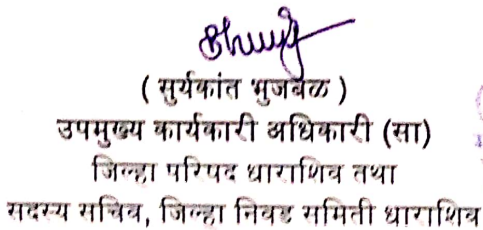 ( सुर्यकांत भुजबळ )
उपमुख्य कार्यकारी अधिकारी (सा)
जिल्हा परिषद धाराशिव तथा
सदस्य सचिव, जिल्हा निवड समिती धाराशिव